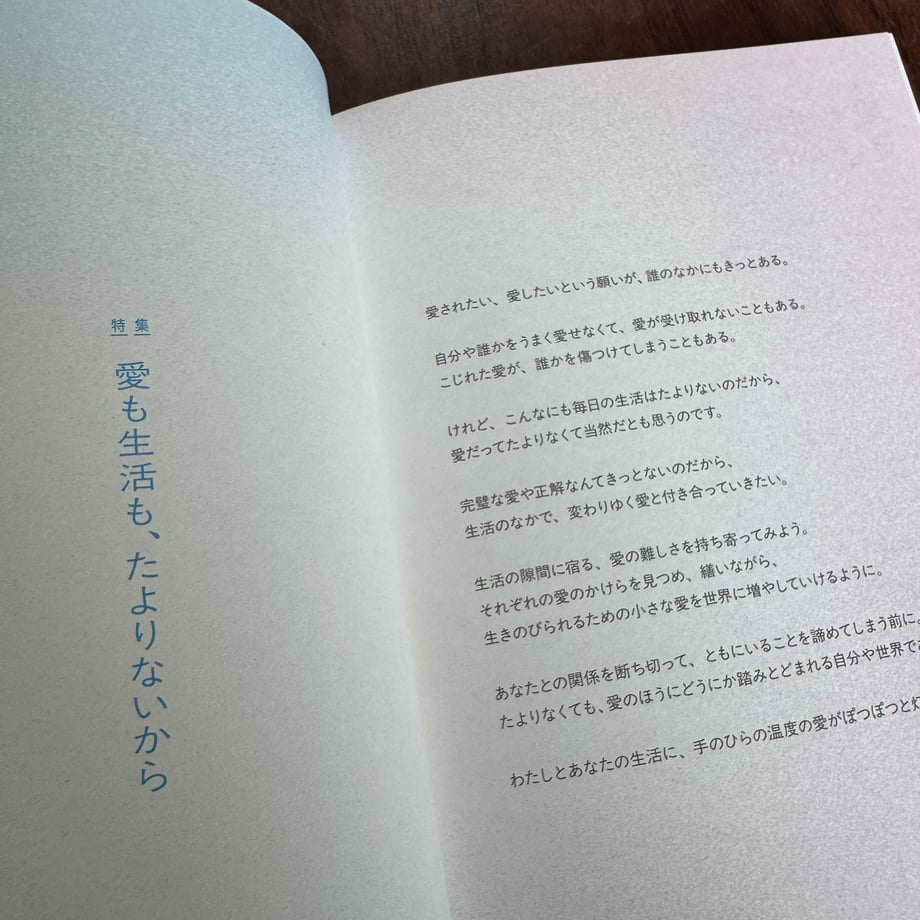 特集
愛も生活も、たよりないから
愛されたい、愛したいという願いが、誰のなかにもきっとある。
自分や誰かをうまく愛せなくて、愛が受け取れないこともある。
こじれた愛が、誰かを傷つけてしまうこともある。
けれど、こんなにも毎日の生活はたよりないのだから、
愛だってたよりなくて当然だとも思うのです。
完璧な愛や正解なんてきっとないのだから、
生活のなかで、変わりゆく愛と付き合っていきたい。
生活の隙間に宿る、愛の難しさを持ち寄ってみよう。
それぞれの愛のかけらを見つめ、繕いながら、
生きのびられるための小さな愛を世界に増やしていけるように。
あなたとの関係を断ち切って、ともにいることを諦めてしまう前に。
たよりなくても、愛のほうにどうにか踏みとどまれる自分や世界で
わたしとあなたの生活に、手のひらの温度の愛がぽつぽつと